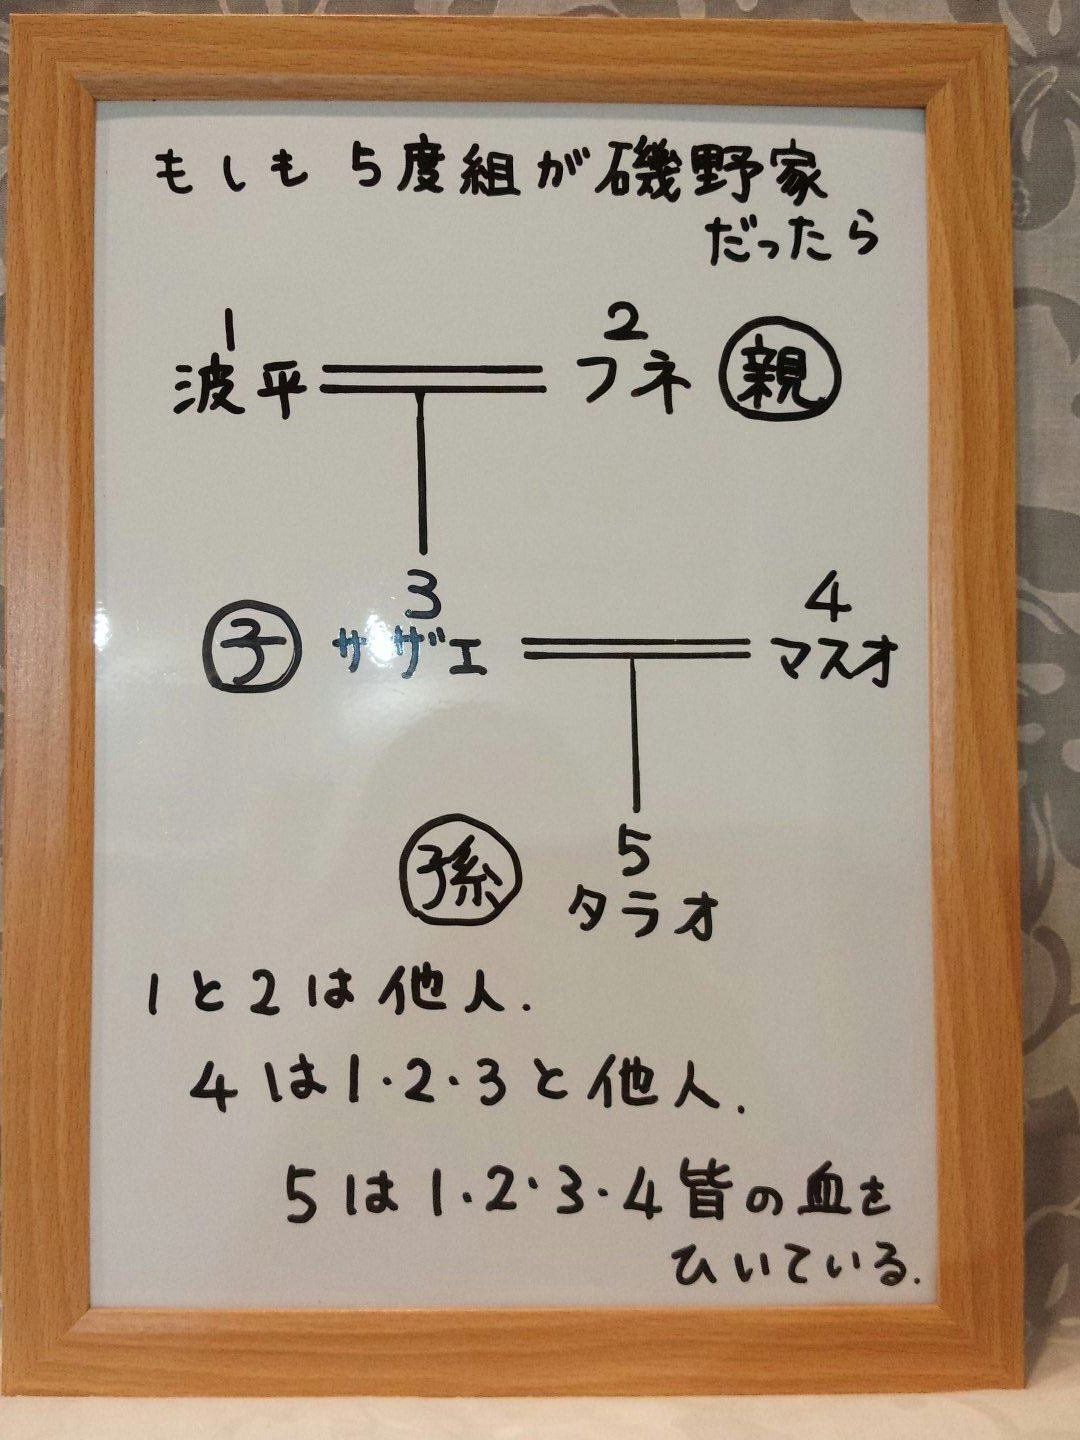 もしも5度組が磯野家
だったら
1 2
波平 フネ 親
3 4
子 サザエ マスオ
5
孫 タラオ
1と2は他人.
4は1・2・3と他人.
5は1・2・3・4皆の血を
ひいている.